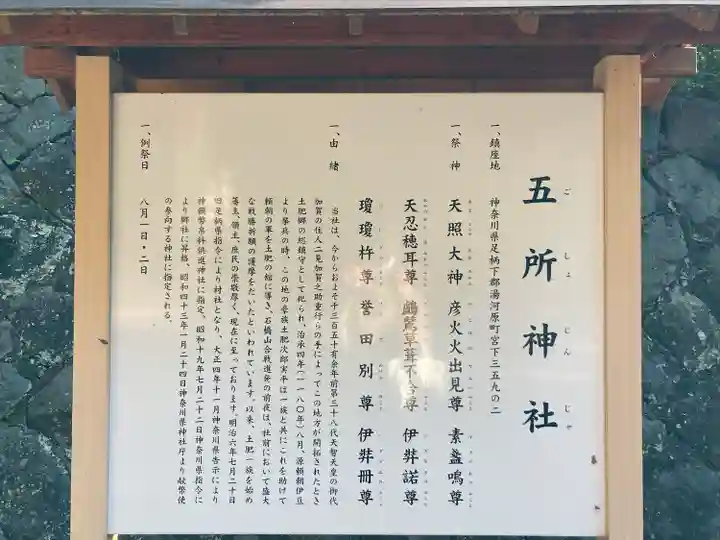 五所神社
ごしょじんじゃ
一、鎮座地 神奈川県足柄下郡湯河原町宮下三五九の二
一、祭神 天照大神 彦火火出見尊 素盞鳴尊
天忍穂耳尊 鸕鶿草葺不合尊 伊弉諾尊
瓊瓊杵尊 誉田別尊 伊弉冊尊
一、由緒
当社は、今からおよそ千三百五十有余年前第三十八代天智天皇の御代
加賀の住人二見加賀之助重行らの手によってこの地方が開拓されたとき
土肥郷の総鎮守として祀られ、治承四年(一一八〇年)八月、源頼朝伊豆
より挙兵の時、この地の豪族土肥次郎実平は一族と共にこれを助けて
頼朝の軍を土肥の館に導き、石橋山合戦進発の前夜は、社前において盛大
な戦勝祈願の護摩をたいたといわれています。以来、土肥一族を始め
等主、領主、庶民の崇敬厚く、現在に至っております。明治六年七月二十日
四足柄県指令により村社となり、大正四年十一月神奈川県告示により
神饌幣帛料供進神社に指定、昭和十九年七月二十二日神奈川県指令に
より郷社に昇格、昭和四十三年一月二十四日神奈川県神社庁より献幣使
の参向する神社に指定される。
一、例祭日 八月一日・二日